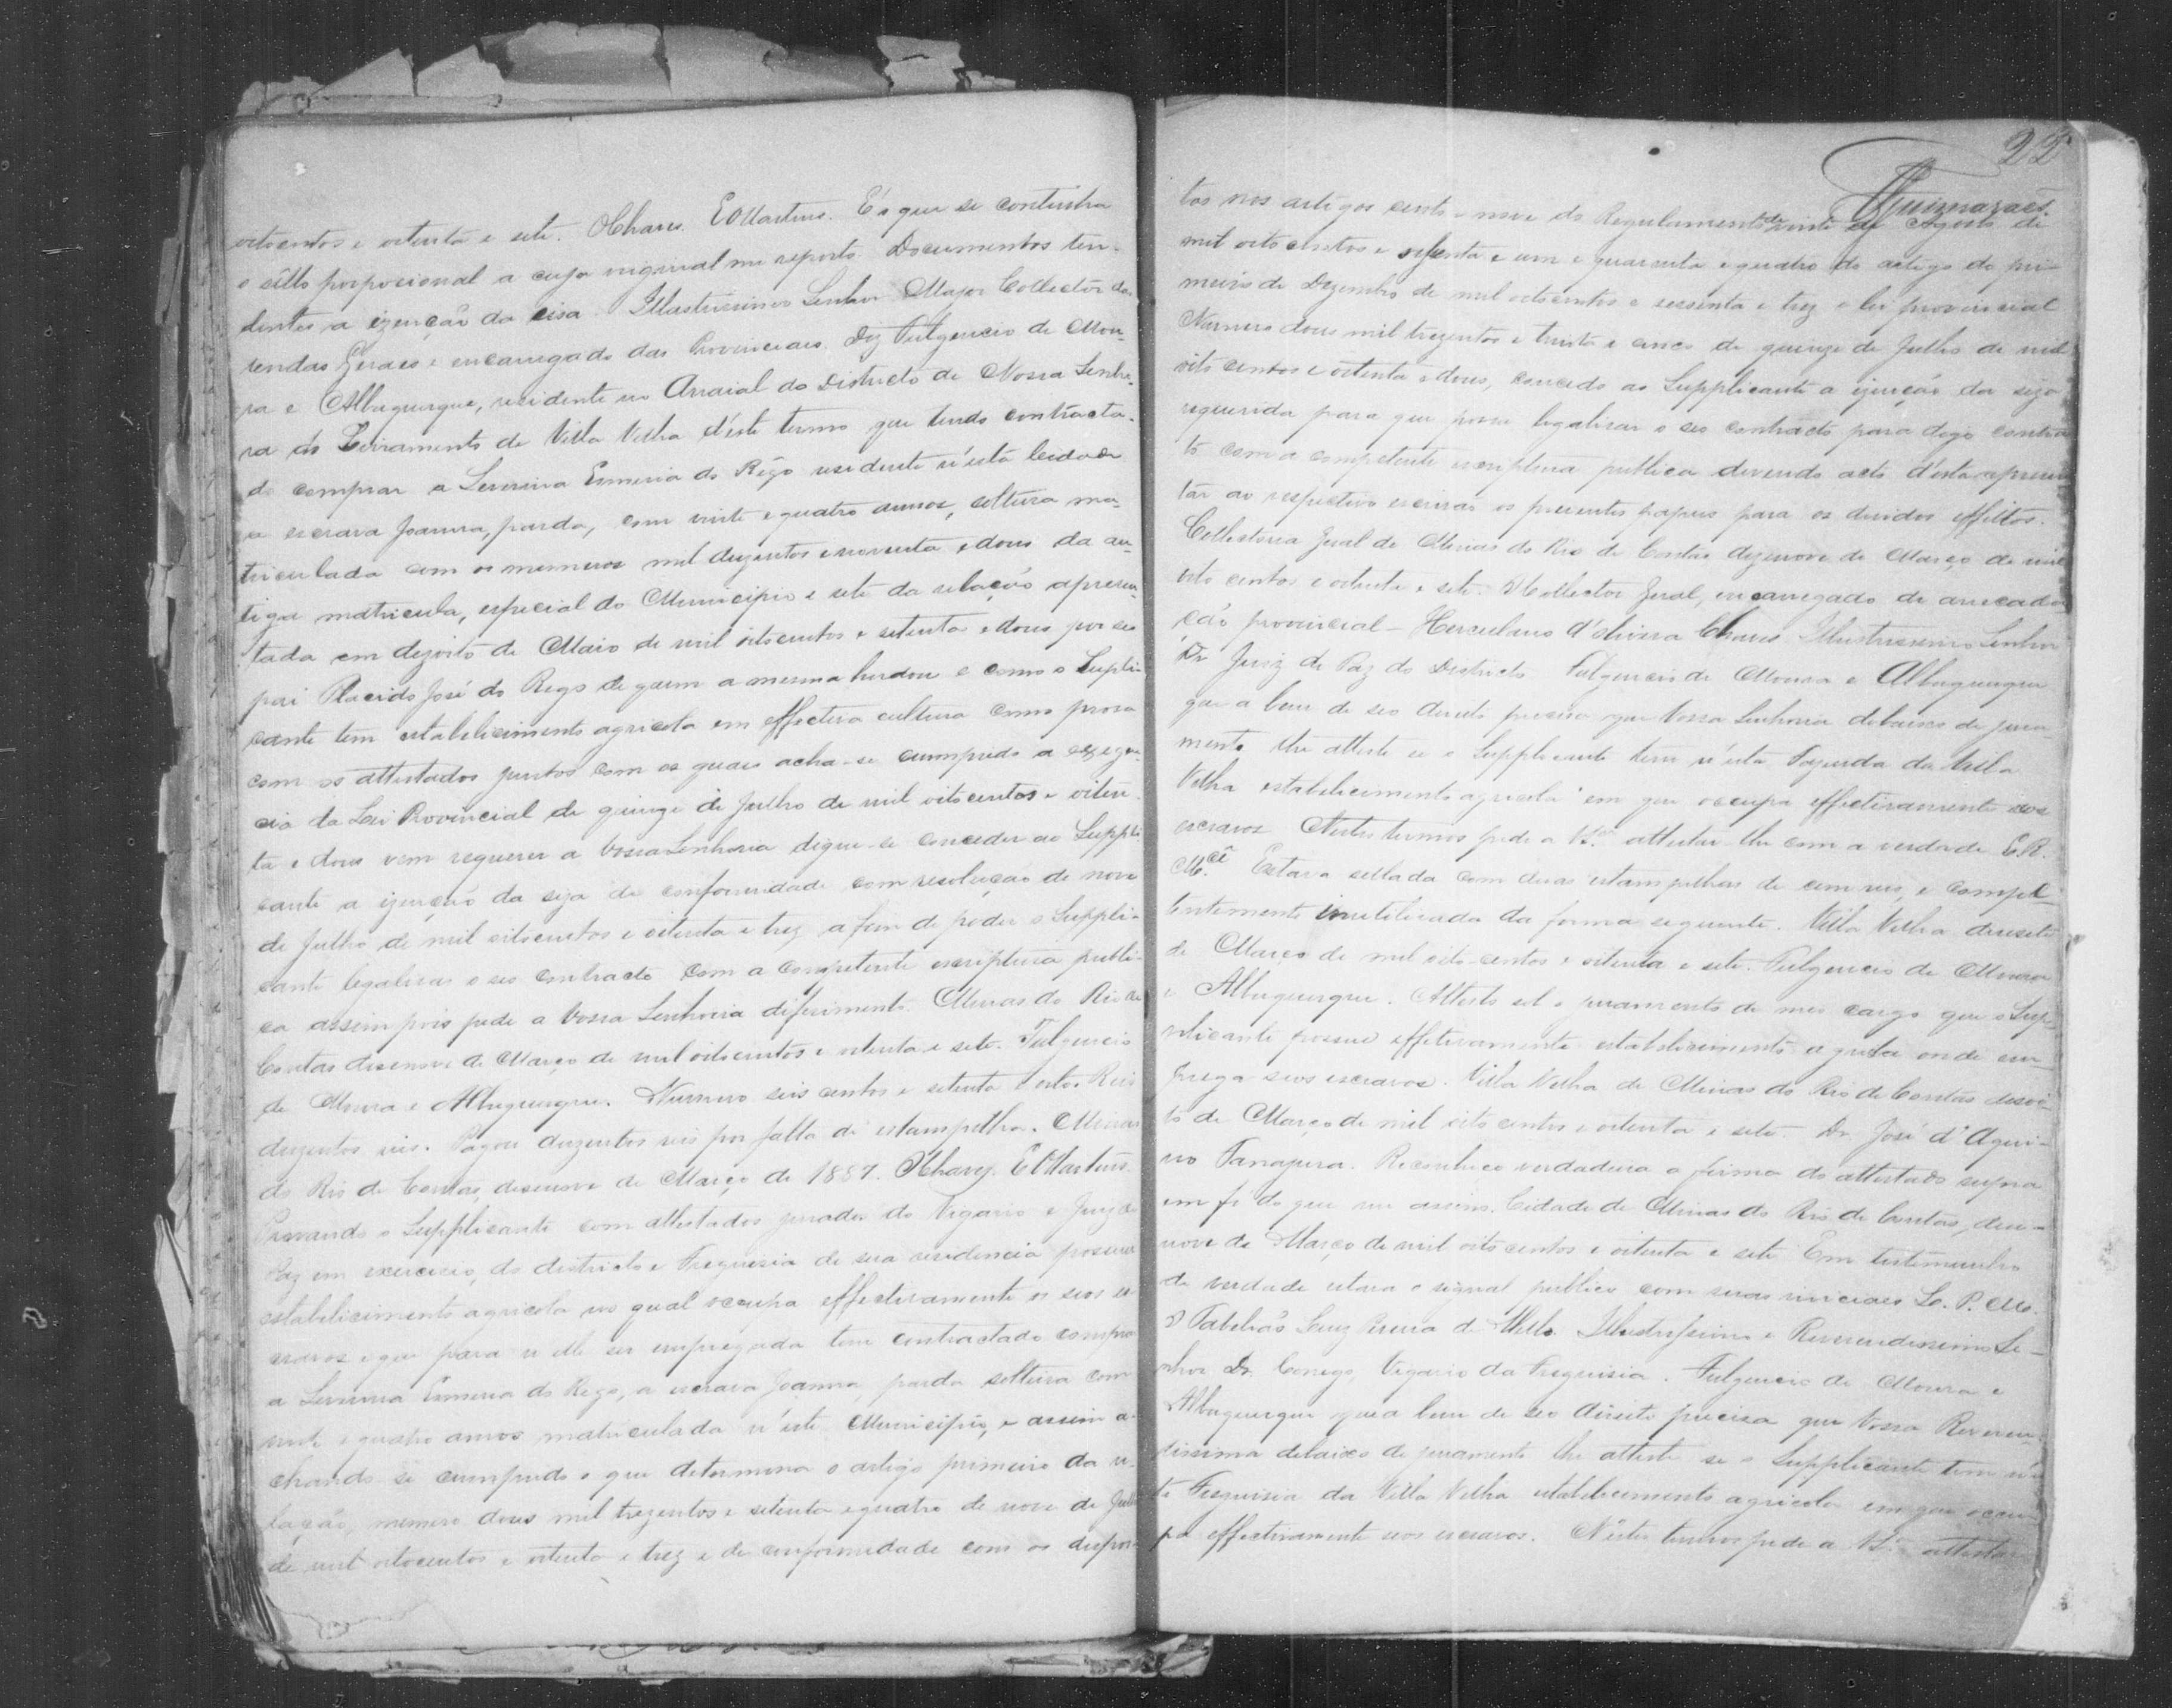 oitocentos e oitenta e sete. OChaves. EOMartins. É o que se continha
o sêllo porporcional a cujo original me reporto. Documentos ten-
dentes a izenção da sisa. Illustrissimo Senhor Major Collector das
rendas Geraes e encarregado das Provinciaes. Diz Fulgencio de Mou-
ra e Albuquerque, residente no Arraial do Districto de Nossa Senho-
ra do Livramento de Villa Velha d'éste termo que tendo contracta-
do comprar a Severina Esmeria do Rêgo residente n'ésta Cidade
a escrava Joanna, parda, com vinte e quatro annos, solteira ma-
triculada com os numeros mil duzentos e noventa e dous da an-
tiga matricula, especial do Municipio e sete da relação apresen-
tada em dezoito de Maio de mil oitocentos e setenta e dous por seo
pai Placido José do Rego de quem a mesma herdou e como o Suppli-
cante tem estabelicimento agricola em effectiva cultura como prova
com os attestados juntos com os quaes acha-se cumprido a exegen-
cia da Lei Provincial de quinze de Julho de mil oitocentos e oiten-
ta e dous vem requerer a Vossa Senhoria digne-se conceder ao Suppli-
cante a izenção da siza de conformidade com resolução de nove
de Julho de mil oitocentos e oitenta e trez a fim de poder o Suppli-
cante legalisar o seo contracto com a competente escriptura publi-
ca assim pois pede a Vossa Senhoria diferimento. Minas do Rio de
Contas desenove de Março de mil oitocentos e oitenta e sete. Fulgencio
de Moura e Albuquerque. Numero seis centos e setenta e oito. Reis
duzentos reis. Pagou duzentos reis por falta de estampilha. Minas
do Rio de Contas, desenove de Março de 1887. OChaves. EOMartins.
Provando o Supplicante com attestados jurados do Vigario e Juiz de
Paz em exercicio, do districto e Freguesia de sua residencia possuir
estabelicimento agricola no qual occupa effectivamente os seos es-
cravos e que para n'elle ser empregada tem contractado comprar
a Severina Esmeria do Rego, a escrava Joanna, parda solteira com
vinte e quatro annos matriculada n'este Municipio, e assim a-
chando-se cumprido o que determina o artigo primeiro da re-
lação, numero dous mil trezentos e setenta e quatro de nove de Julho
de mil oitocentos e oitenta e trez e de conformidade com os dispos-
22
Guimaraes.
tos nos artigos cento e nove do Regulamento de vinte de Agosto de
mil oito centos e setenta e um e quarenta e quatro do artigo do pri-
meiro de Dezembro de mil oitocentos e sessenta e trez e lei provincial
Numero dous mil trezentos e trinta e cinco de quinze de Julho de mil
oito centos e oitenta e dous, concedo ao Supplicante a izenção da siza
requerida para que possa legalisar o seo contracto para digo contra-
to com a competente escriptura publica devendo acto d'esta apresen-
tar ao respectivo escrivão os presentes papeis para os devidos effeitos.
Collectoria Geral de Minas do Rio de Contas dezenove de Março de mil
oito centos e oitenta e sete. O Collector Geral, encarregado da arrecada-
ção provincial - Herculano d'Oliveira Chaves. Illustrissimo Senhor
Dr. Juiz de Paz do Districto. Fulgencio de Moura e Albuquerque
que a bem de seo direito precisa que Vossa Senhoria debaixo de jura-
mento lhe atteste se o Supplicante tem n'ésta Fazenda da Villa
Velha estabelicimento agricola em que occupa effectivamente seos
escravos. Nestes termos pede a V.Sa. attestar-lhe com a verdade E.R.
M.cê Estava sellada com duas estampilhas de cem reis, e compe-
tentemente inutilisada da forma seguinte. Villa Velha desesete
de Março de mil oito centos e oitenta e sete. Fulgencio de Moura
e Albuquerque. Attesto sob o juramento de meu cargo que o Sup-
plicante possue effetivamente estabelicimento agricola onde em-
prega seos escravos. Villa Velha de Minas do Rio de Contas desoi-
to de Março de mil oito centos e oitenta e sete. Dr. José d'Aqui-
no Tanajura. Reconheço verdadeira a firma do attestado supra
em fé do que me assino. Cidade de Minas do Rio de Contas, dese-
nove de Março de mil oito centos e oitenta e sete. Em testemunho
da verdade estava o signal publico com suas iniciaes L. P. M.
O Tabelião Luiz Pereira de Mello. Illustrissimo e Reverendissimo Se-
nhor Dr. Conego Vigario da Freguisia. Fulgencio de Moura e
Albuquerque que a bem de seo direito precisa que Vossa Reveren-
dissima debaixo de juramento lhe atteste se o Supplicante tem n'es-
ta Freguisia da Villa Velha estabelicimento agricola em que occu-
pa effectivamente seos escravos. N'estes termos pede a V.Sa. attestar